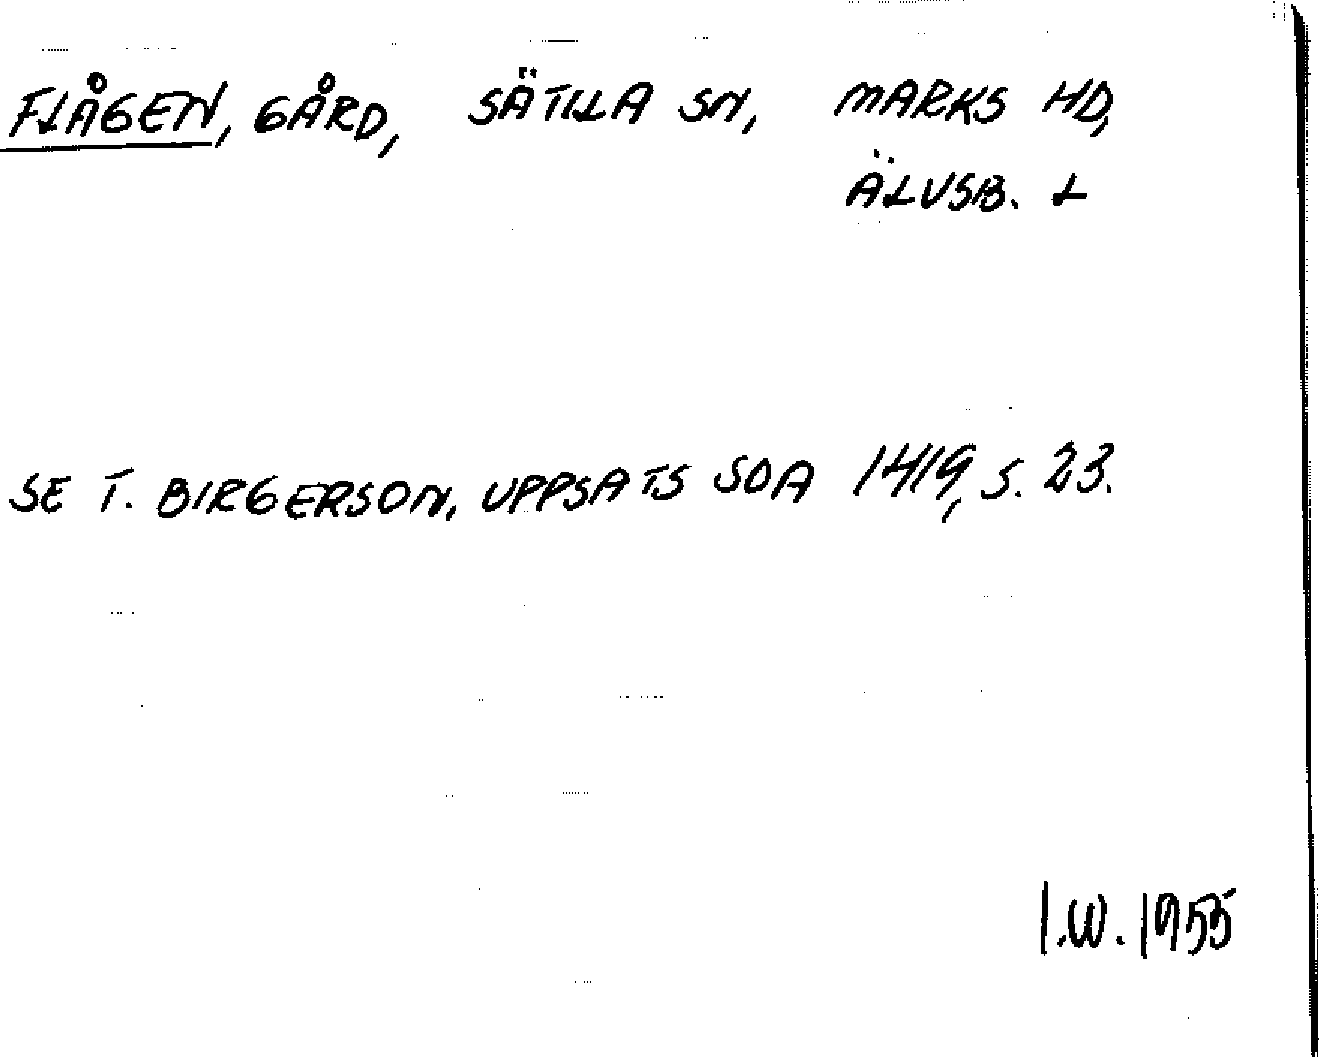 FLÅGEN, GÅRD, SÄTILA SN, MARKS HD,
ÄLVSB. L
SE T. BIRGERSON, UPPSATS SOA 1419, S. 23.
I.W. 1955